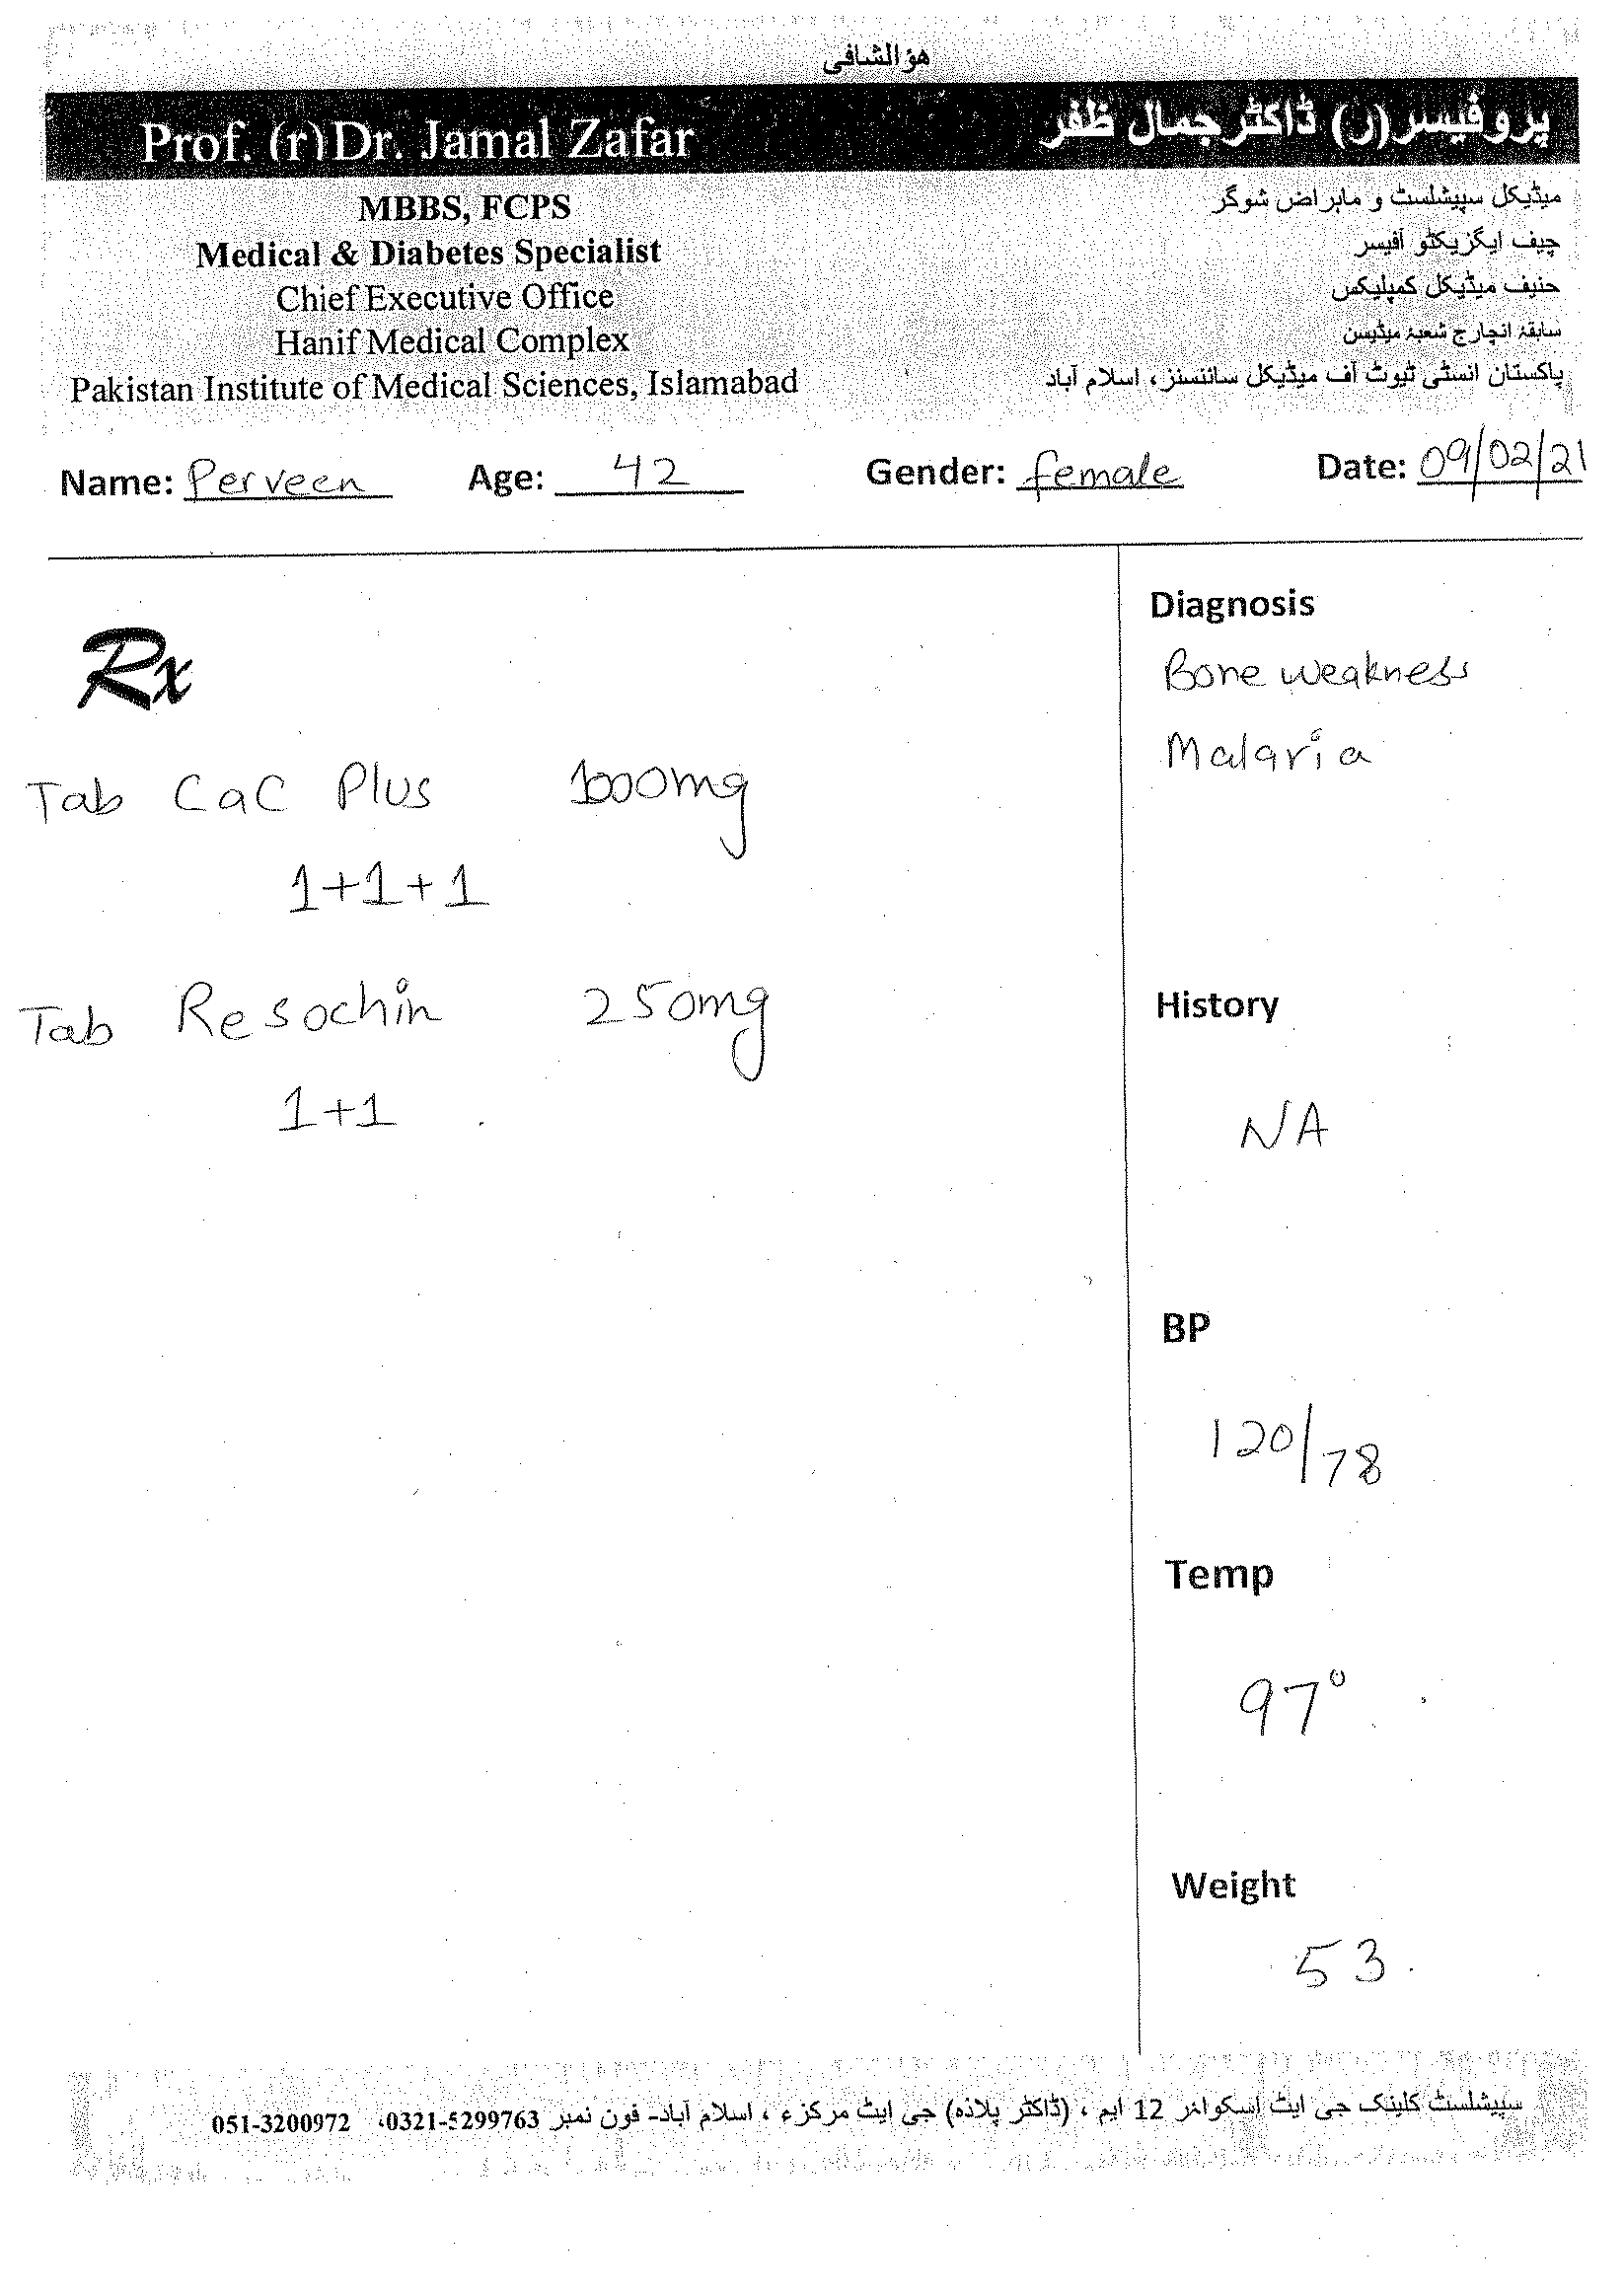 هوالشافی
Prof. (r) Dr. Jamal Zafar
پروفیسر (ر) ڈاکٹر جمال ظفر
MBBS, FCPS
Medical & Diabetes Specialist
Chief Executive Office
Hanif Medical Complex
Pakistan Institute of Medical Sciences, Islamabad
میڈیکل سپیشلسٹ و ماہراض شوگر
چیف ایگزیکٹو آفیسر
حنیف میڈیکل کمپلیکس
سابقہ انچارج شعبۂ میڈیسن
پاکستان انسٹی ٹیوٹ آف میڈیکل سائنسنز، اسلام آباد
Name: Perveen Age: 42 Gender: female Date: 09/02/21
Rx
Tab CaC Plus 1000mg
1+1+1
Tab Resochin 250mg
1+1
Diagnosis
Bone weakness
Malaria
History
NA
BP
120/78
Temp
97°
Weight
53
سپیشلسٹ کلینک جی ایٹ اسکوائر 12 ایم ، (ڈاکٹر پلازہ) جی ایٹ مرکزء ، اسلام آباد۔ فون نمبر 0321-5299763، 051-3200972